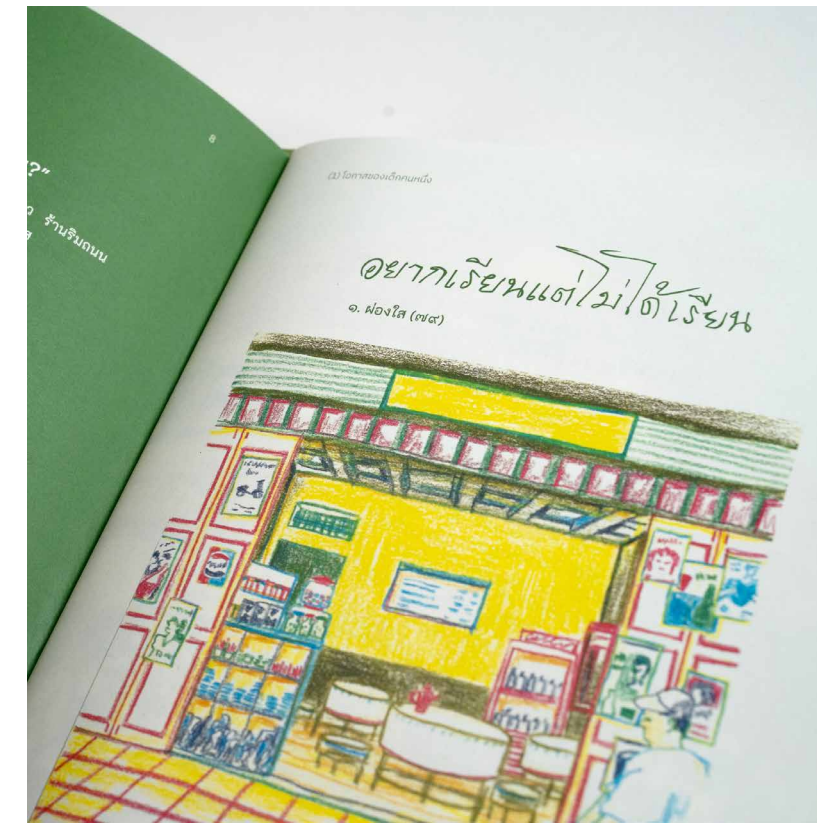 8
?"
ร้านริมถนน
(1) โอกาสของเด็กคนหนึ่ง
อยากเรียนแต่ไม่ได้เรียน
๑. ผ่องใส (๗๙)